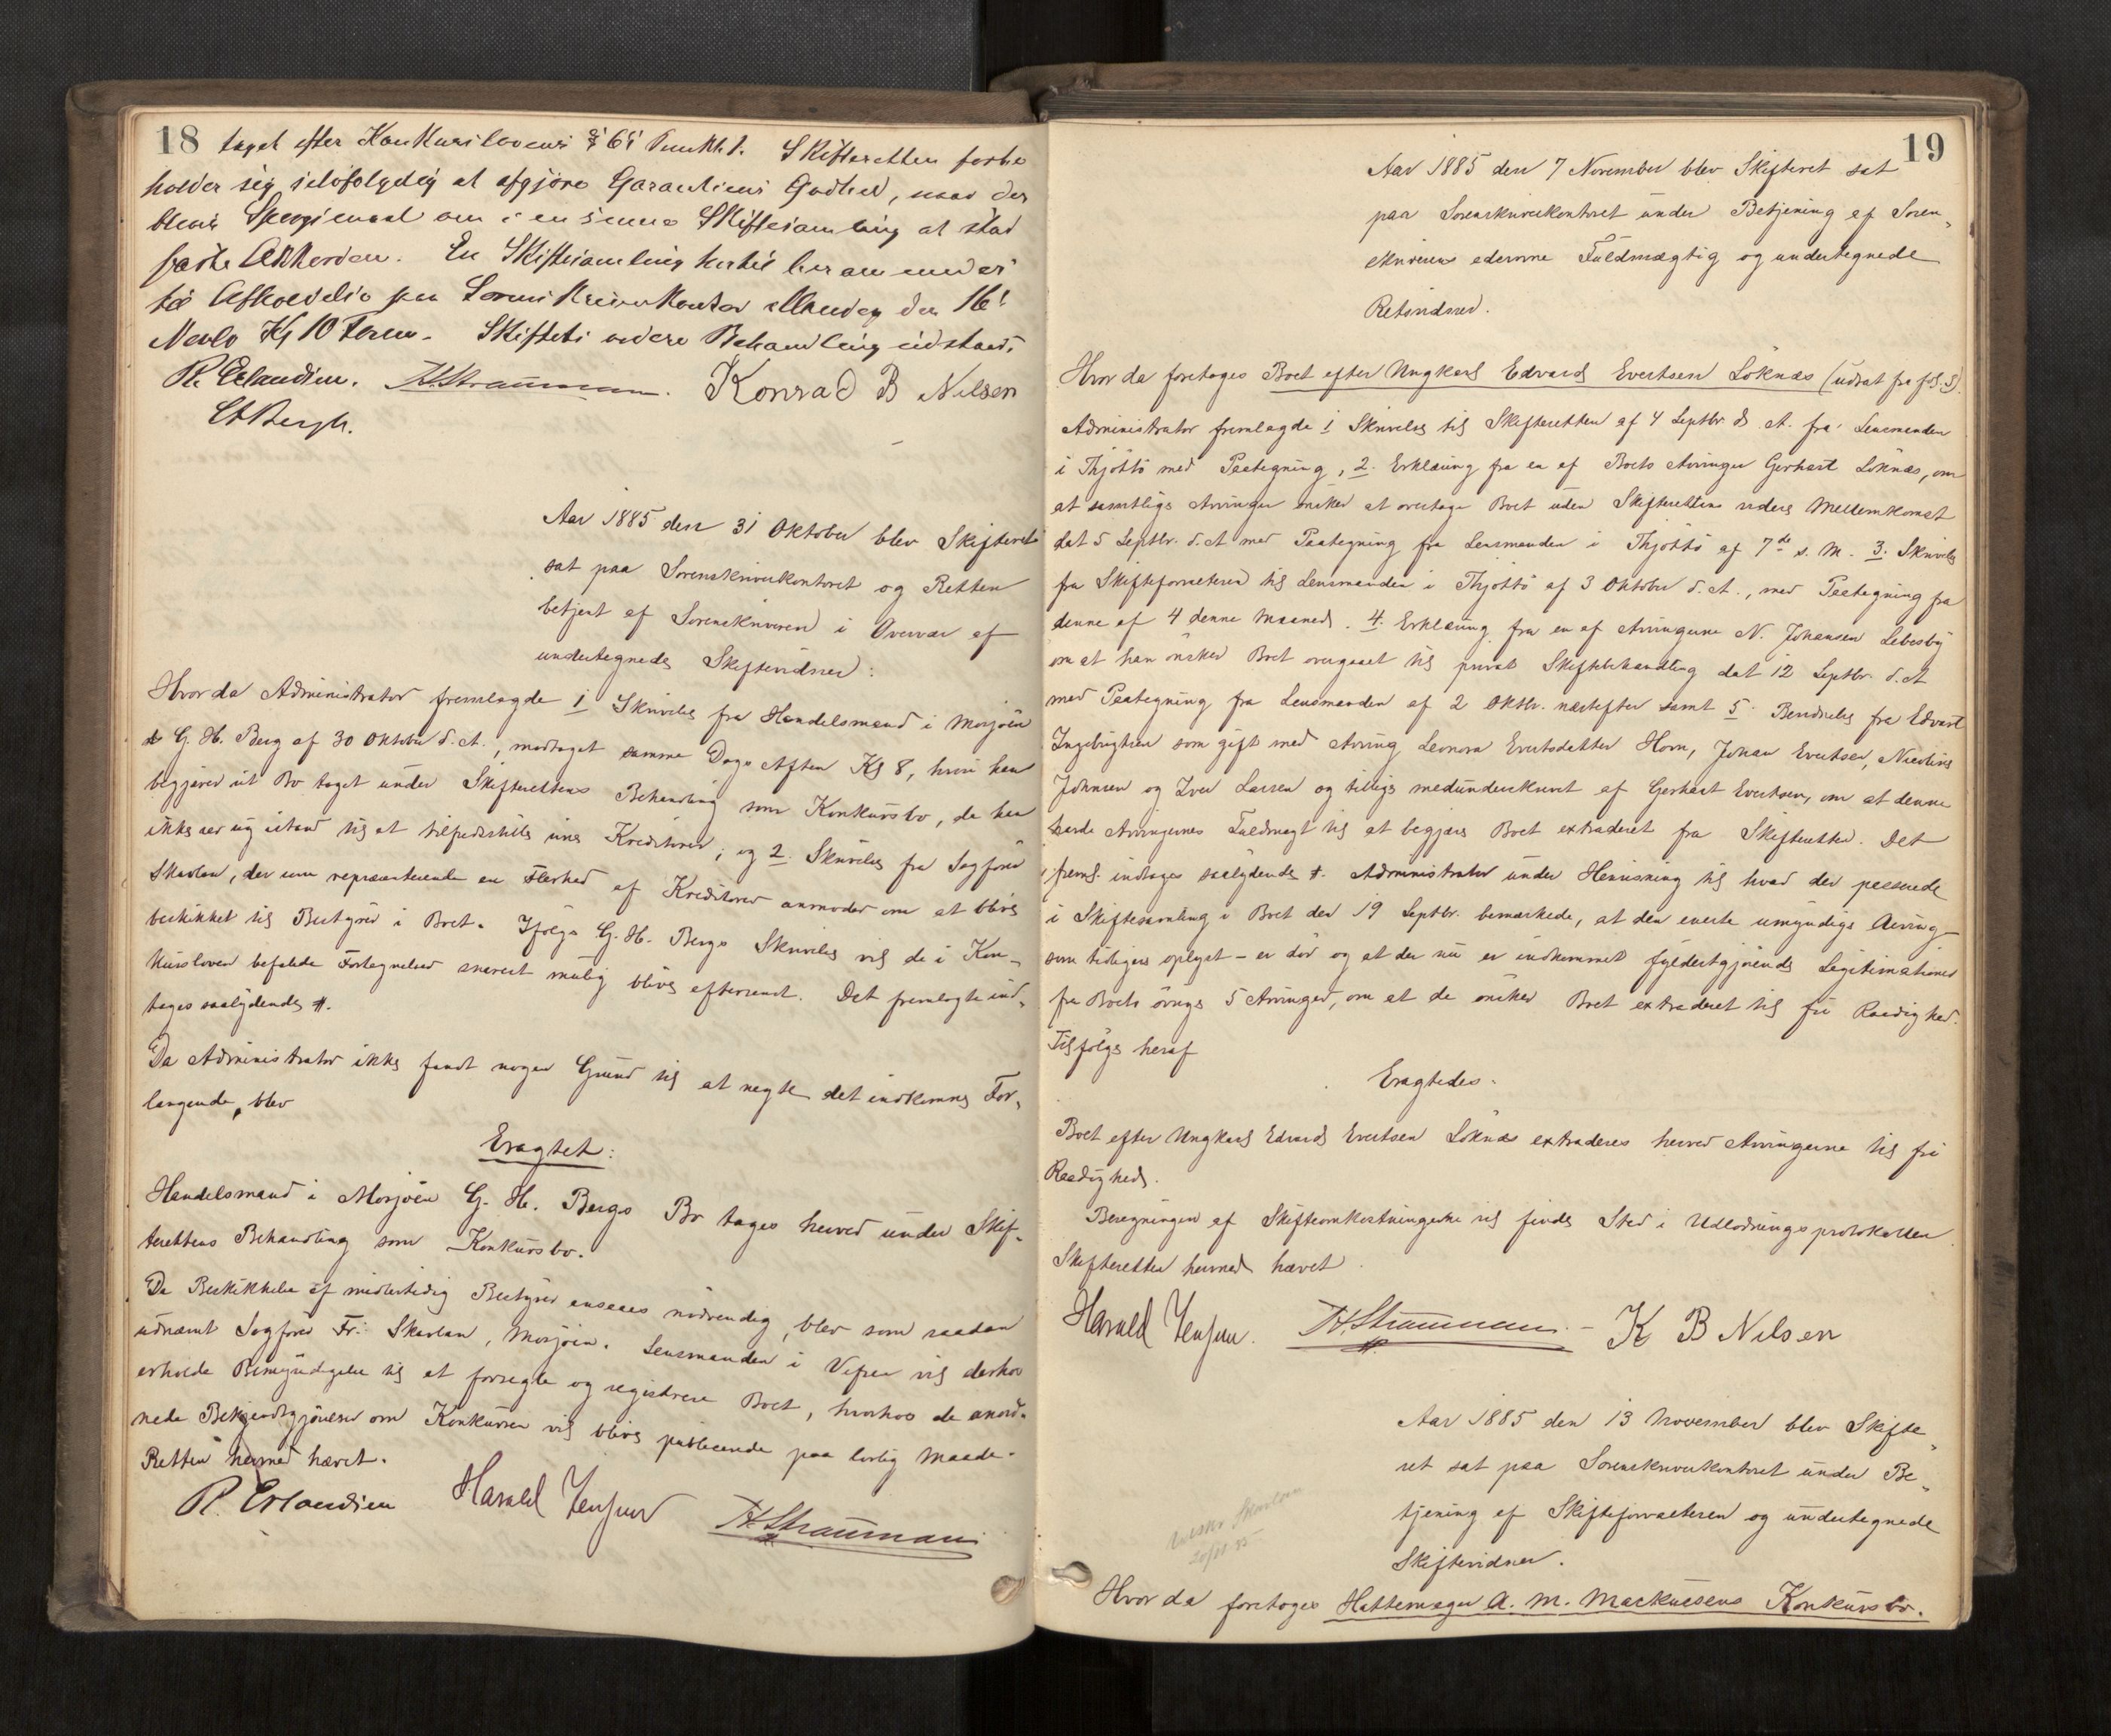 18
taget efter Konkurslovens § 6 Punkt 1. Skifteretten forbe
holder sig selvfølgelig at afgjøre Garantiens Godhed, naar der
bliver Spørgsmaal om i en senere Skiftesamling at stad
fæste Akkorden. En Skiftesamling hertil
til Afholdelse paa Sorenskriverkontor Mandag den 16
Novbr Kl 10 Form. Skiftets videre Behandling udstaar.
R. Erlandsen. H. Straumann. Konrad B Nilsen
Bergh.
Aar 1885 den 31 Oktober blev Skifteret
sat paa Sorenskriverkontoret og Retten
betjent af Sorenskriveren i Overvær af
undertegnede Skiftevidner:
Hvorda Administrator fremlagde 1 Skrivelse fra Handelsmand i Mosjøen
G. H. Berg af 30 Oktober d. A., modtaget samme Dags Aften Kl 8, hvori han
begjærer sit Bo taget under Skifterettens Behandling som Konkursbo, da han
ikke ser sig istand til at tilfredsstille sine Kreditorer; og 2. Skrivelse fra Sagfører
Skavlan, der som repræsenterende en Flerhed af Kreditorer anmoder om at blive
beskikket til Bestyrer i Boet. Ifølge G. H. Bergs Skrivelse vil de i Kon-
kursloven befalede Fortegnelser snarest mulig blive eftersendt. Det fremlagte ind-
tages saalydende #.
Da Administrator ikke fandt nogen Grund til at negte det indkomne For-
langende, blev
Eragtet:
Handelsmand i Mosjøen G. H. Bergs Bo tages herved under Skif-
terettens Behandling som Konkursbo.
Da Beskikkelse af midlertidig Bestyrer ansees nødvendig, blev som saadan
udnævnt Sagfører Fr. Skavlan, Mosjøen. Lensmanden i Vefsen vil derhos
erholde Bemyndigelse til at forsegle og registrere Boet, hvorhos de anord-
nede Bekjendtgjørelser om Konkursen vil blive publicerede paa lovlig Maade.
Retten hermed hævet.
R. Erlandsen Harald Jensen H. Straumann
19
Aar 1885 den 7 November blev Skifteret sat
paa Sorenskriverkontoret under Betjening af Soren-
skriverens edsvorne Fuldmægtig og undertegnede
Retsvidner.
Hvor da foretages Boet efter Ungkarl Edvard Evertsen Løknæs (udsat fra fol. 5).
Administrator fremlagde 1 Skrivelse til Skifteretten af 4 Septbr. d. A. fra Lensmanden
i Thjøttø med Paategning, 2. Erklæring fra en af Boets Arvinger Gerhart Løknæs, om
at samtlige Arvinger ønsker at overtage Boet uden Skifterettens videre Mellemkomst
dat 5 Septbr. d. A med Paategning fra Lensmanden i Thjøttø af 7de s. M. 3. Skrivelse
fra Skifteforvalteren til Lensmanden i Thjøttø af 3 Oktober d. A., med Paategning fra
denne af 4 denne Maaned. 4. Erklæring fra en af Arvingerne N. Johansen Lebesby
om at han ønsker Boet overgaaet til privat Skiftebehandling dat 12 Septbr. d. A
med Paategning fra Lensmanden af 2 Oktbr. næstefter samt 5. Bevidnelse fra Edvart
Ingebrigtsen som gift med Arving Leonora Evertsdatter Horn, Johan Evertsen, Nicoline
Johnsen og Iver Larsen og tillige medunderskrevet af Gerhart Evertsen, om at denne
havde Arvingernes Fuldmagt til at begjære Boet extraderet fra Skifteretten. Det
freml. indtages saalydende #. Administrator under Henvisning til hvad der passerede
i Skiftesamling i Boet den 19 Septbr. bemærkede, at den eneste umyndige Arving -
som tidligere oplyst - er død og at der nu er indkommet fyldestgjørende Legitimationer
fra Boets øvrige 5 Arvinger, om at de ønsker Boet extraderet til fri Raadighed.
Tilfølge heraf
Eragtedes.
Boet efter Ungkarl Edvard Evertsen Løknæs extraderes herved Arvingerne til fri
Raadighed.
Beregningen af Skifteomkostningerne vil finde Sted i Udlodningsprotokollen
Skifteretten hermed hævet.
Harald Jensen. H. Straumann. - K B Nilsen
Aar 1885 den 13 November blev Skifte-
ret sat paa Sorenskriverkontoret under Be-
tjening af Skifteforvalteren og undertegnede
Skiftevidner.
Hvor da foretages Hattemager A. M. Markussens Konkursbo.